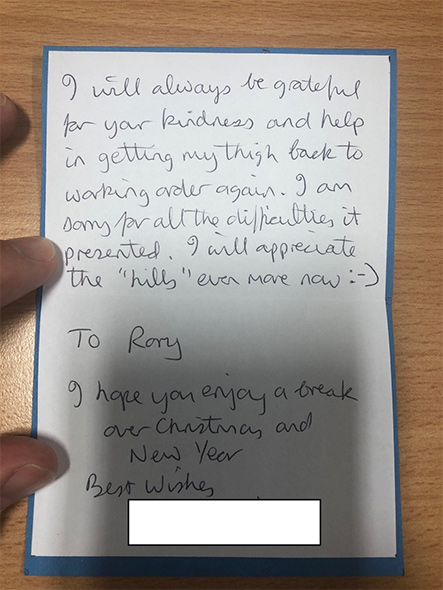 I will always be grateful
for your kindness and help
in getting my thigh back to
working order again. I am
sorry for all the difficulties it
presented. I will appreciate
the "hills" even more now :-)
To Rory
I hope you enjoy a break
over Christmas and
New Year
Best Wishes